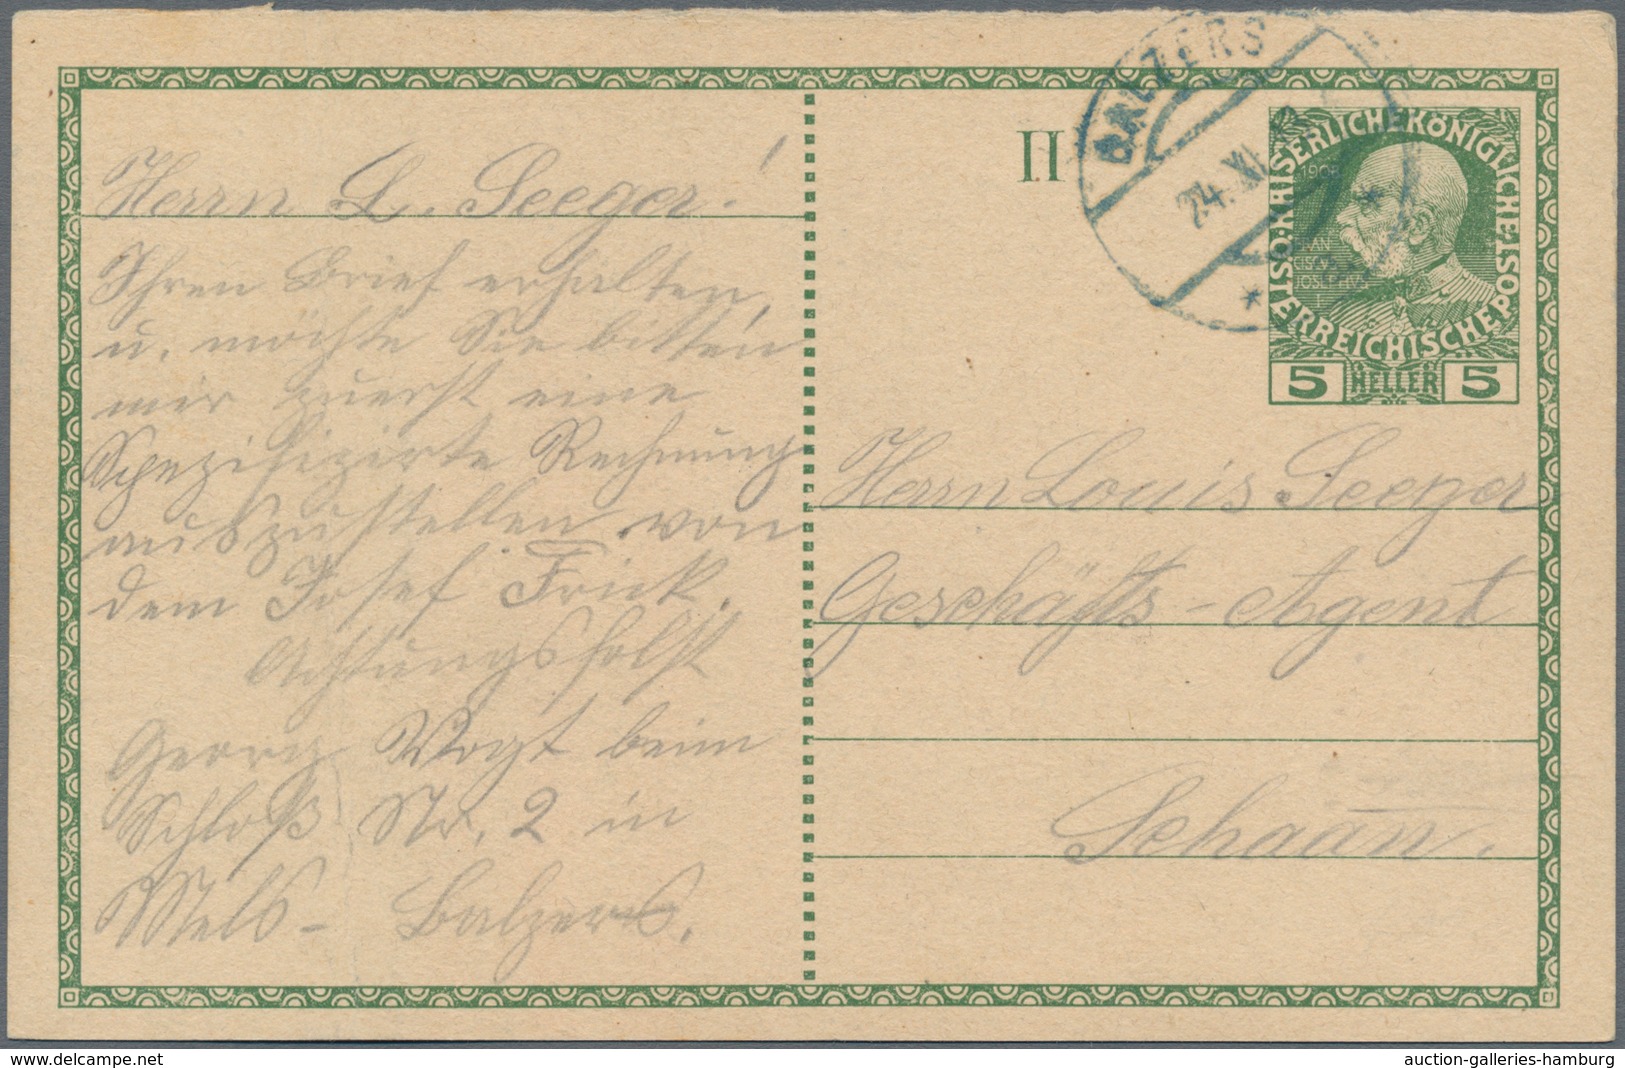 Herrn L. Seeger!
Ihren Brief erhalten,
u. möchte Sie bitten
mir zuerst eine
Spezifizirte Rechnung
auszustellen von
dem Josef Frick.
Achtungsfolst
Georg Vogt beim
Schloß Nr. 2 in
Mels - Balzers.
II
BALZERS
24. XI.
KAISERLICHE KÖNIGLICHE
ÖSTERREICHISCHE POST
1908
FRANZ
JOSEF
I
5 HELLER 5
Herrn Louis Seeger
Geschäfts-Agent
Schaan.
delcampe.net
auction-galleries-hamburg